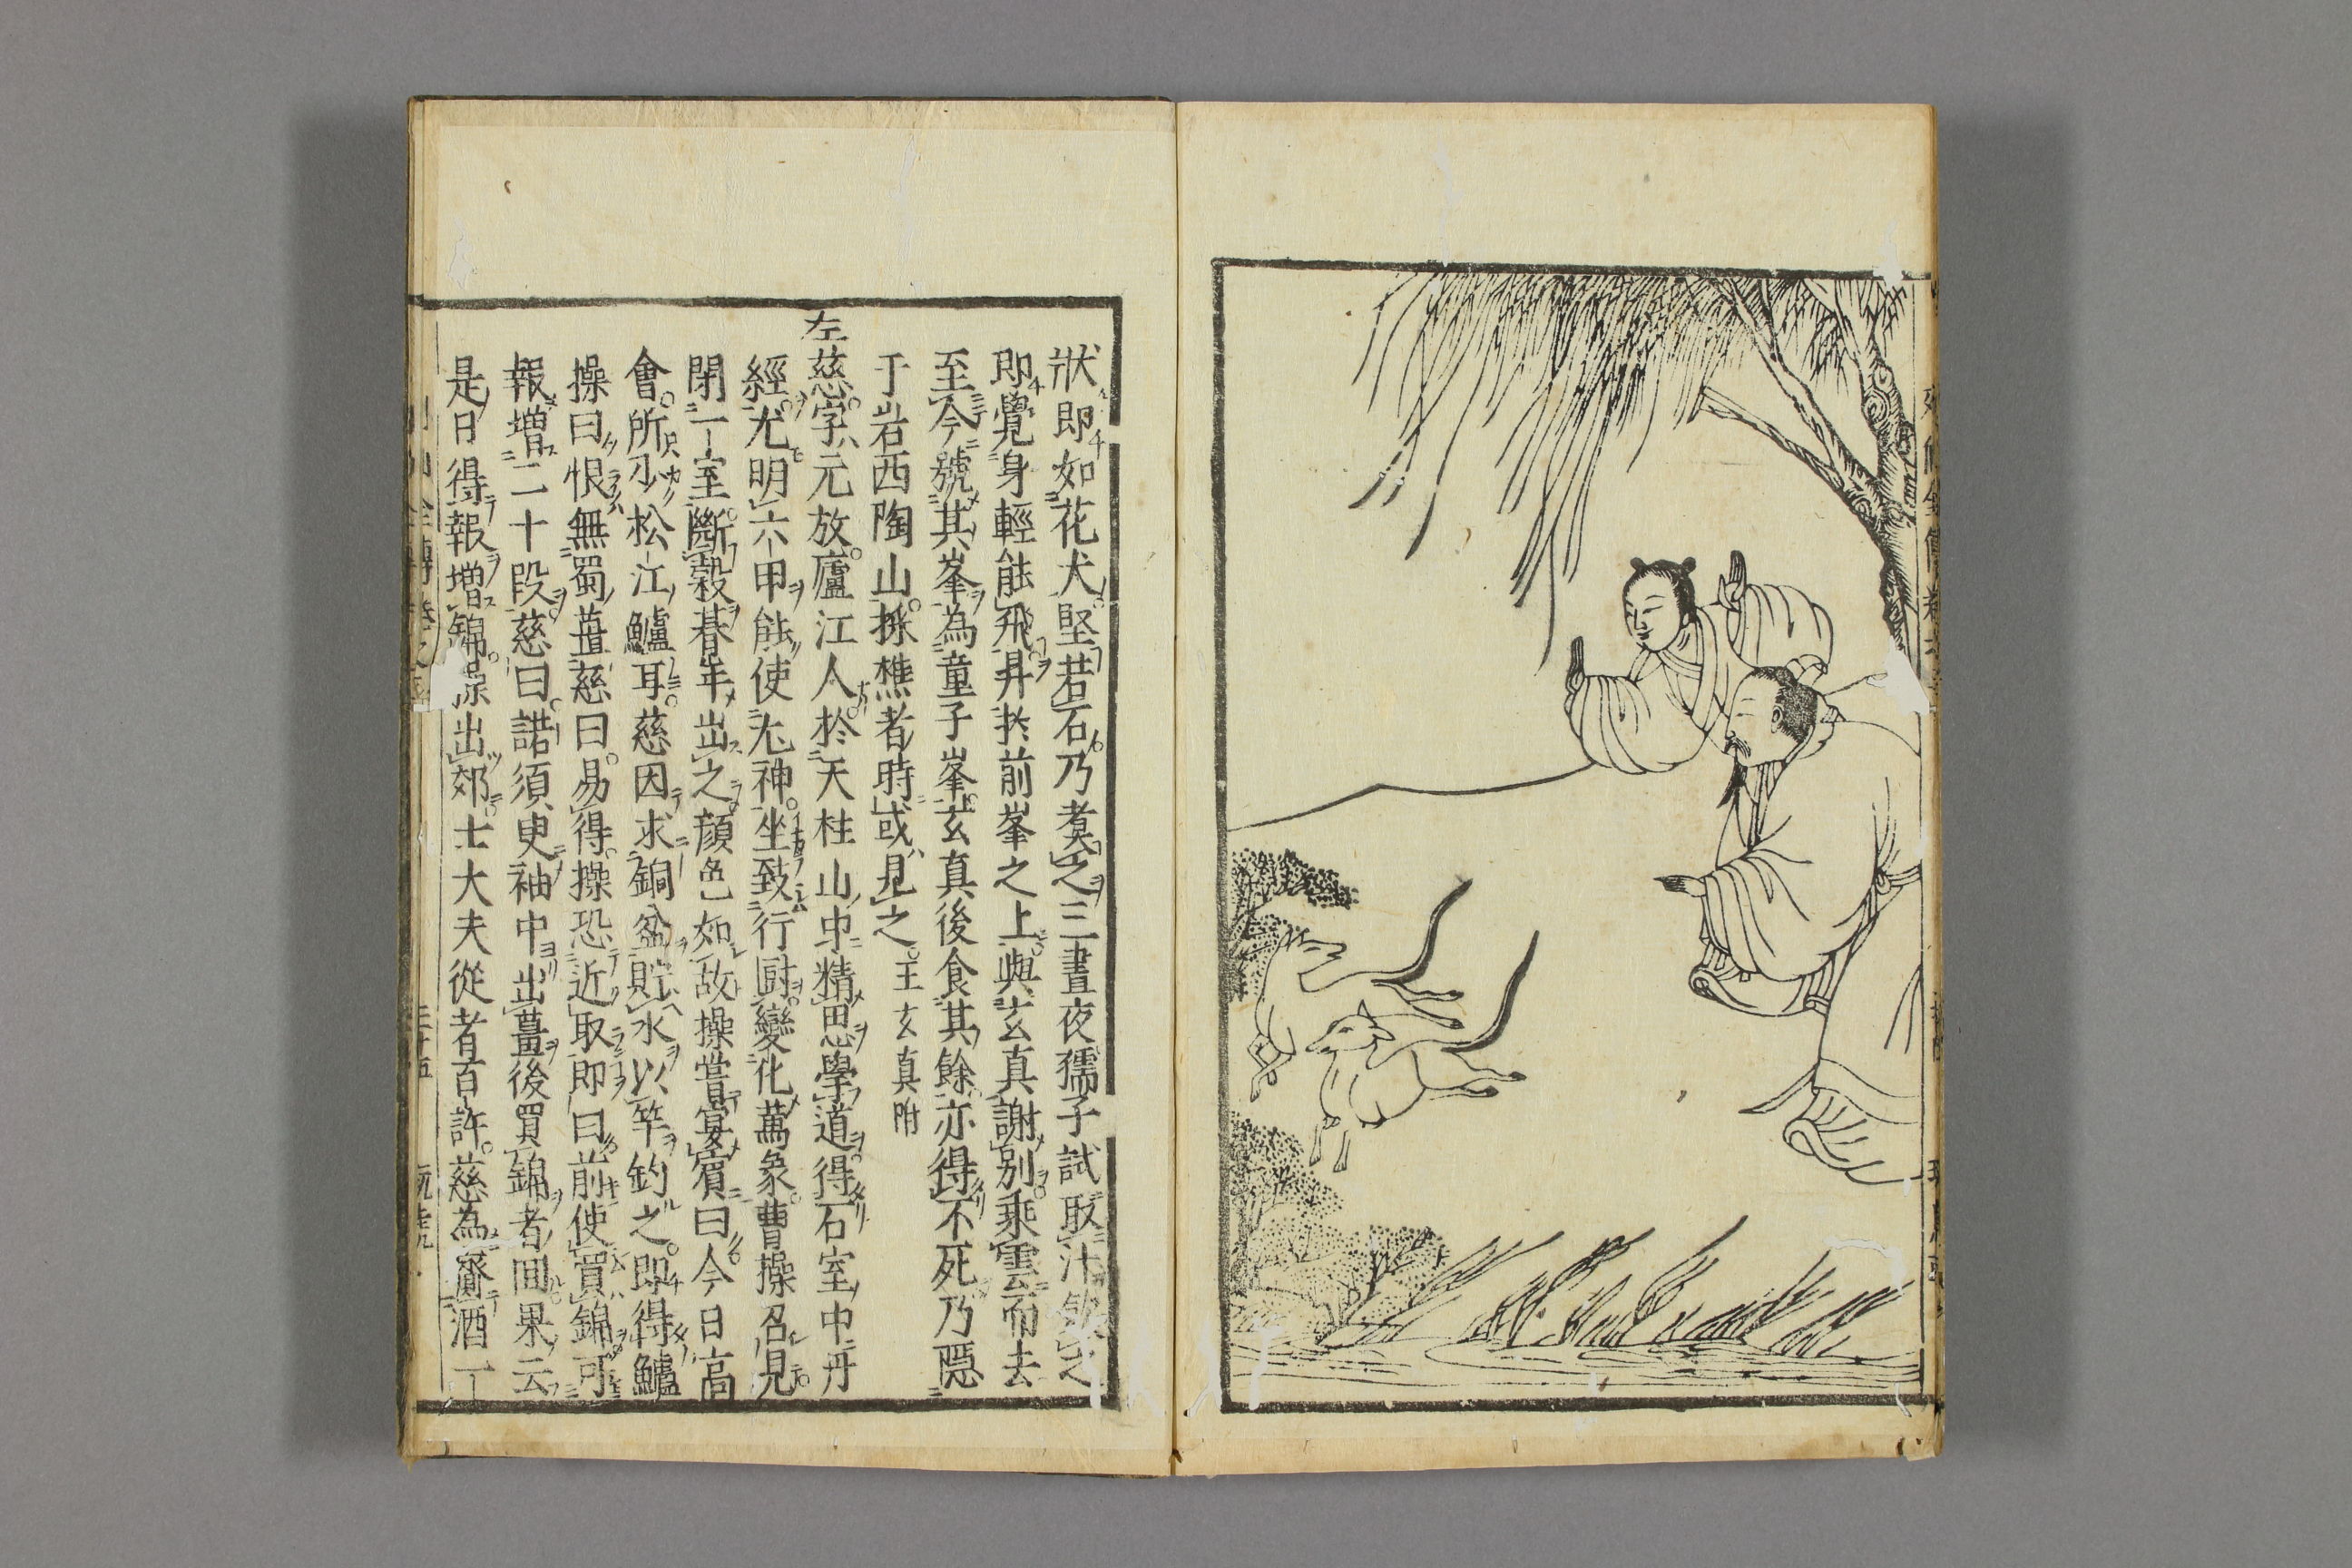 狀即如花犬堅若石乃煑之三晝夜獳子試取汁飲之
即覺身輕能飛昇於前峯之上與玄真謝別乘雲而去
至今號其峯為童子峯玄真後食其餘亦得不死乃隱
于岩西陶山採樵者時或見之王玄真附
左慈字元放廬江人於天柱山中精思學道得石室中丹
經尤明六甲能使鬼神坐致行厨變化萬象曹操召見
閉一室斷穀朞年出之顔色如故操嘗宴賓曰今日高
會所少松江鱸耳慈因求銅盆貯水以竿釣之即得鱸
操曰恨無蜀薑慈曰易得操恐近取即曰前使買錦可
報増二十段慈曰諾須臾袖中出薑後買錦者囬果云
是日得報増錦操出郊士大夫從者百許慈為齎酒一